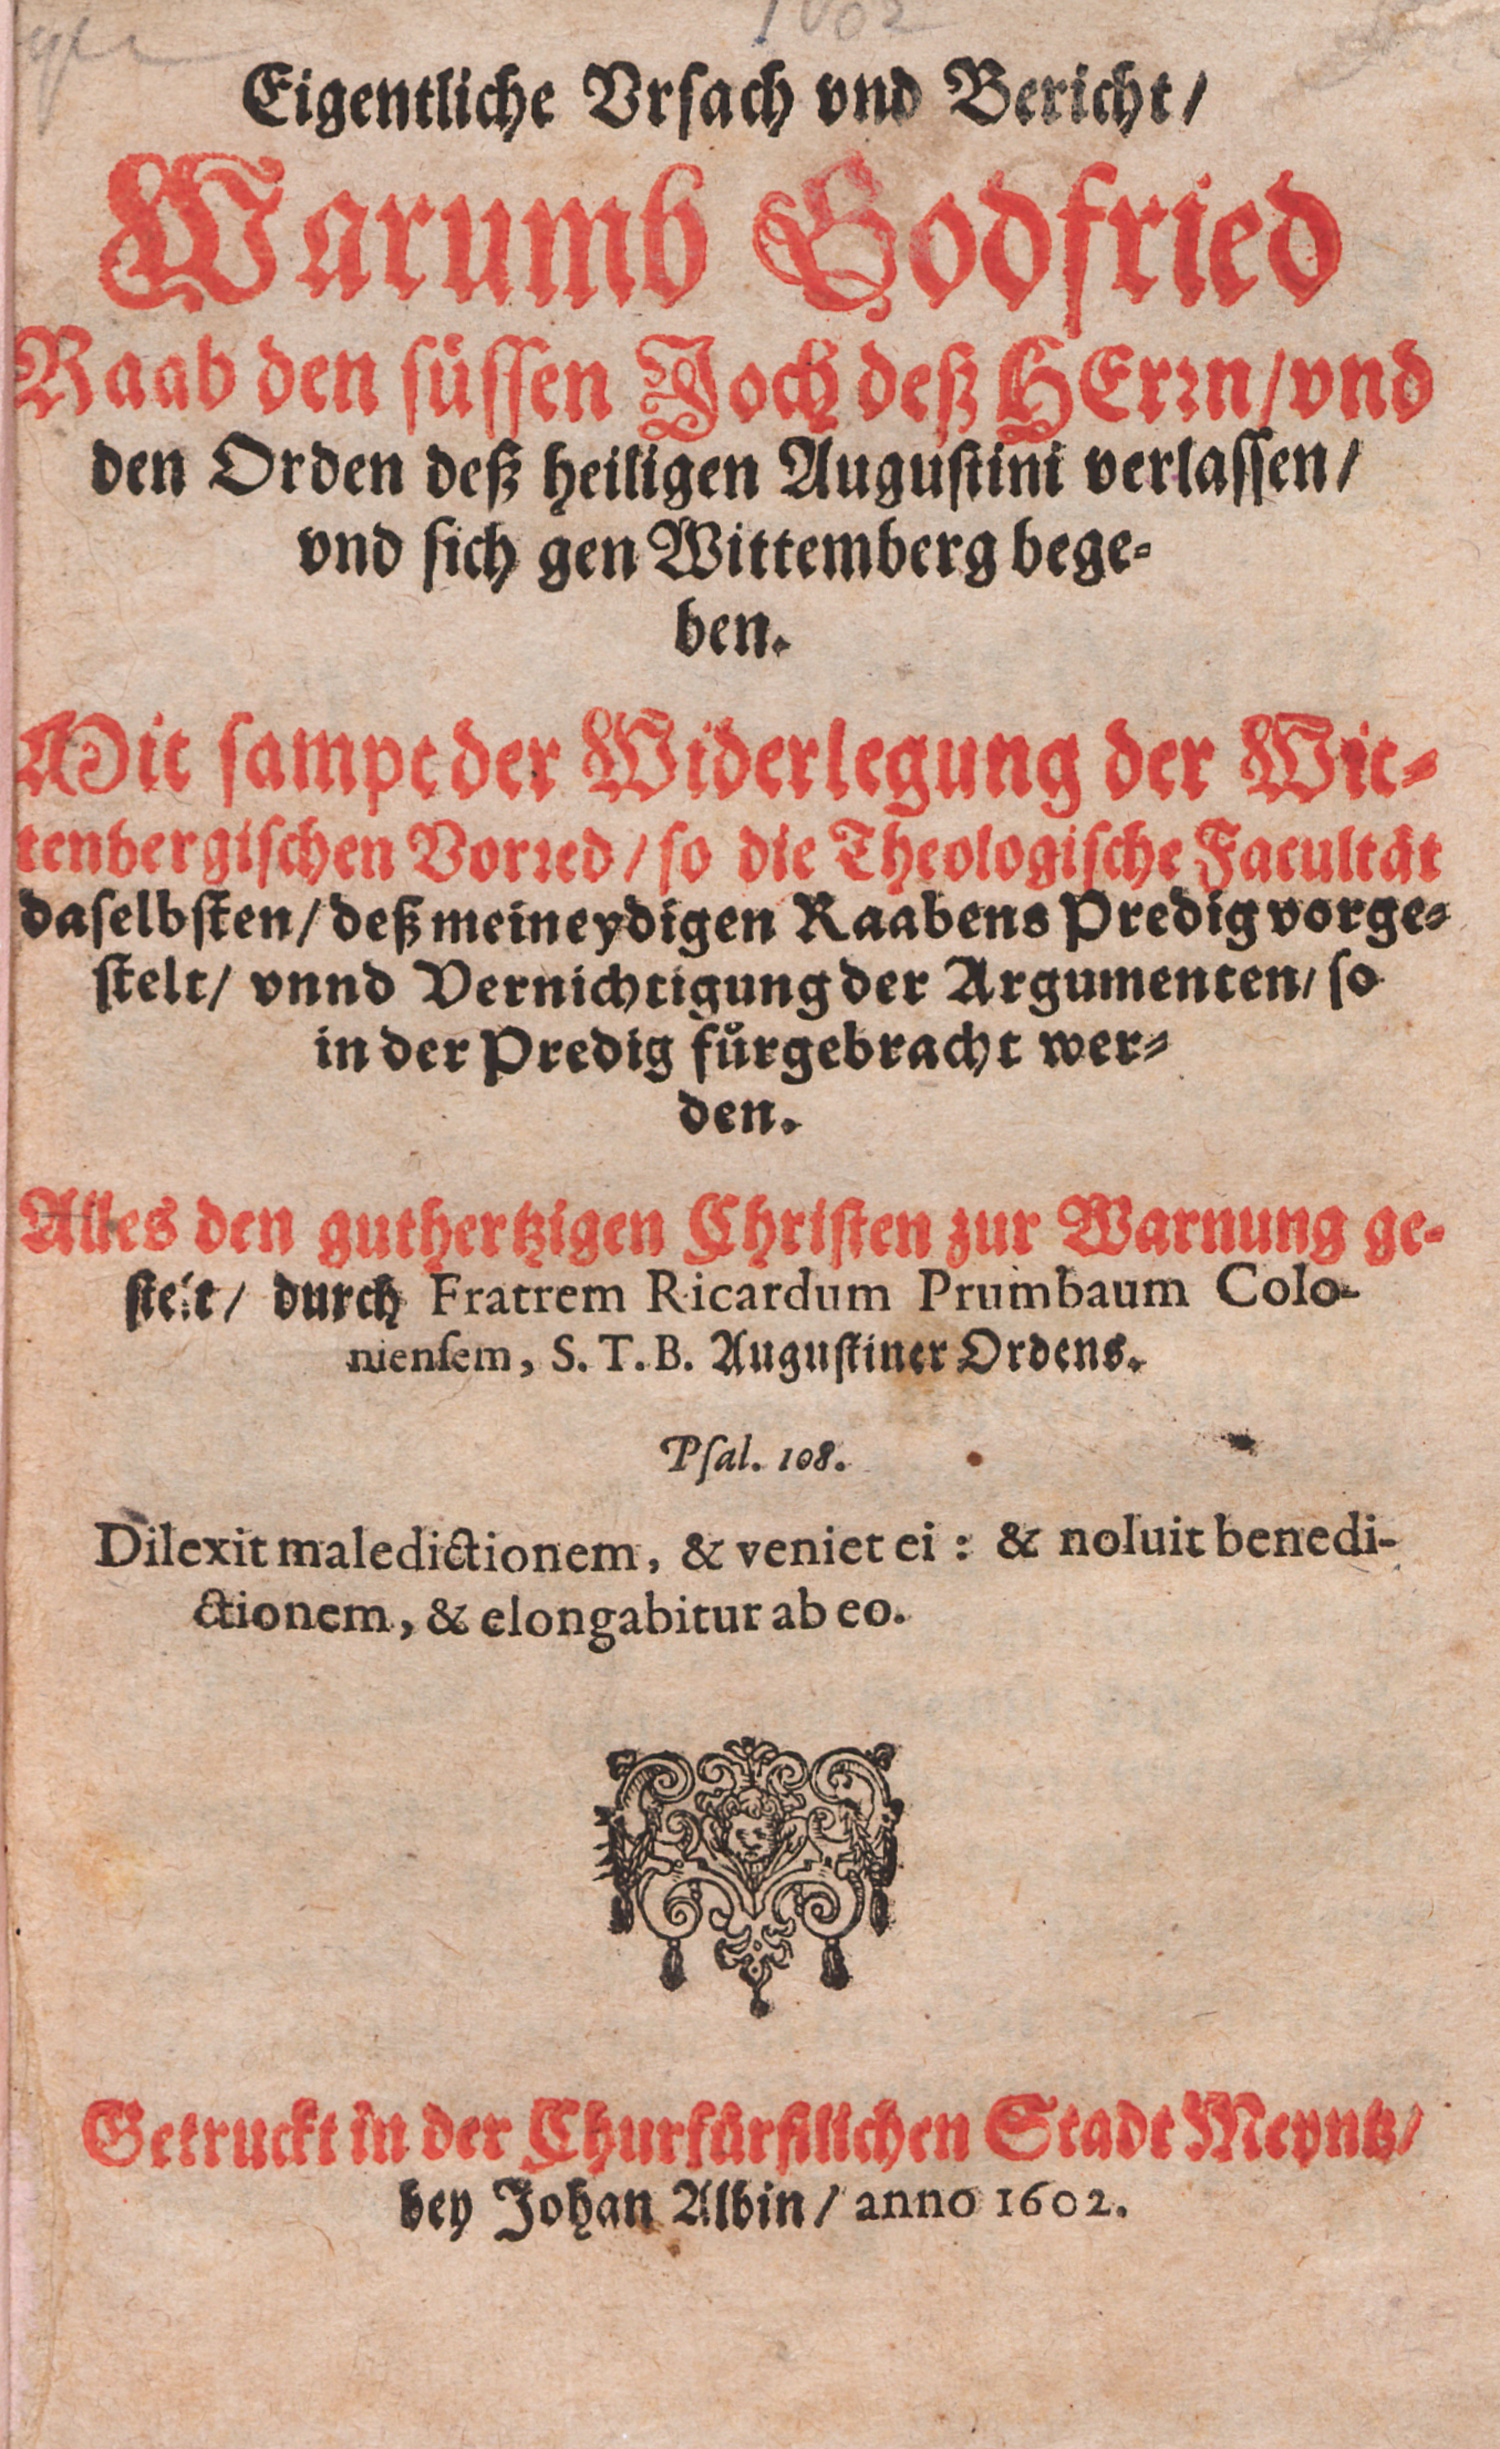 1602
Eigentliche Vrſach vnd Bericht/
Warumb Godfried
Raab den ſuͤſſen Joch deß HErꝛn/ vnd
den Orden deß heiligen Auguſtini verlaſſen/
vnd ſich gen Wittemberg bege-
ben.
Mit ſampt der Widerlegung der Wit-
tenbergiſchen Vorꝛed/ ſo die Theologiſche Facultaͤt
daſelbſten/ deß meineydigen Raabens Predig vorge-
ſtelt/ vnnd Vernichtigung der Argumenten/ ſo
in der Predig fuͤrgebracht wer-
den.
Alles den guthertzigen Chriſten zur Warnung ge-
ſtelt/ durch Fratrem Ricardum Prumbaum Colo-
nienſem, S. T. B. Auguſtiner Ordens.
Pſal. 108.
Dilexit maledictionem, & veniet ei: & noluit benedi-
ctionem, & elongabitur ab eo.
Getruckt in der Churfuͤrſtlichen Stadt Meyntz/
bey Johan Albin/ anno 1602.